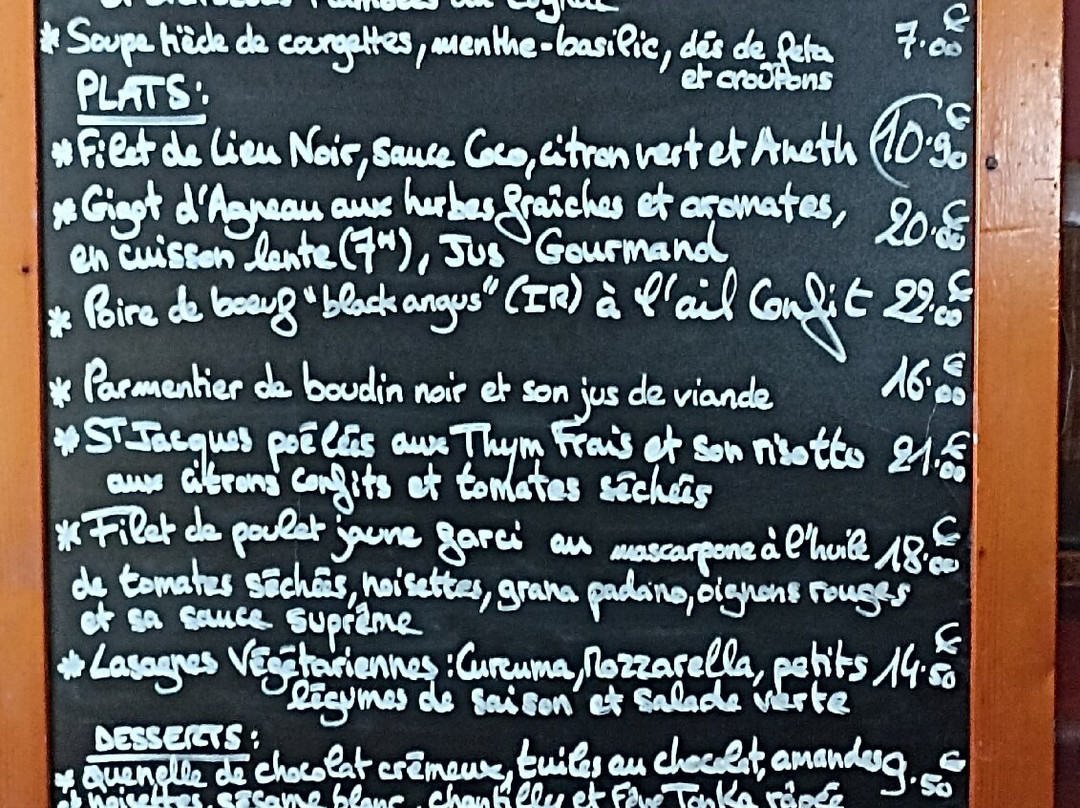 et flambées au Cognac
* Soupe tiède de courgettes, menthe-basilic, dés de feta 7.00€
et croûtons
PLATS:
* Filet de Lieu Noir, sauce Coco, citron vert et Aneth 10.90€
* Gigot d'Agneau aux herbes fraîches et aromates, 20.00€
en cuisson lente (7H), Jus Gourmand
* Poire de boeuf "black angus" (IR) à l'ail Confit 22.00€
* Parmentier de boudin noir et son jus de viande 16.00€
* ST Jacques poêlées aux Thym Frais et son risotto 21.00€
aux citrons confits et tomates séchées
* Filet de poulet jaune farci au mascarpone à l'huile 18.00€
de tomates séchées, noisettes, grana padano, oignons rouges
et sa sauce suprême
* Lasagnes Végétariennes : Curcuma, Mozzarella, petits 14.50€
légumes de saison et salade verte
DESSERTS:
* quenelle de chocolat crémeux, tuiles au chocolat, amandes 9.50€
et noisettes, sésame blanc, chantilly et Fève Tonka râpée